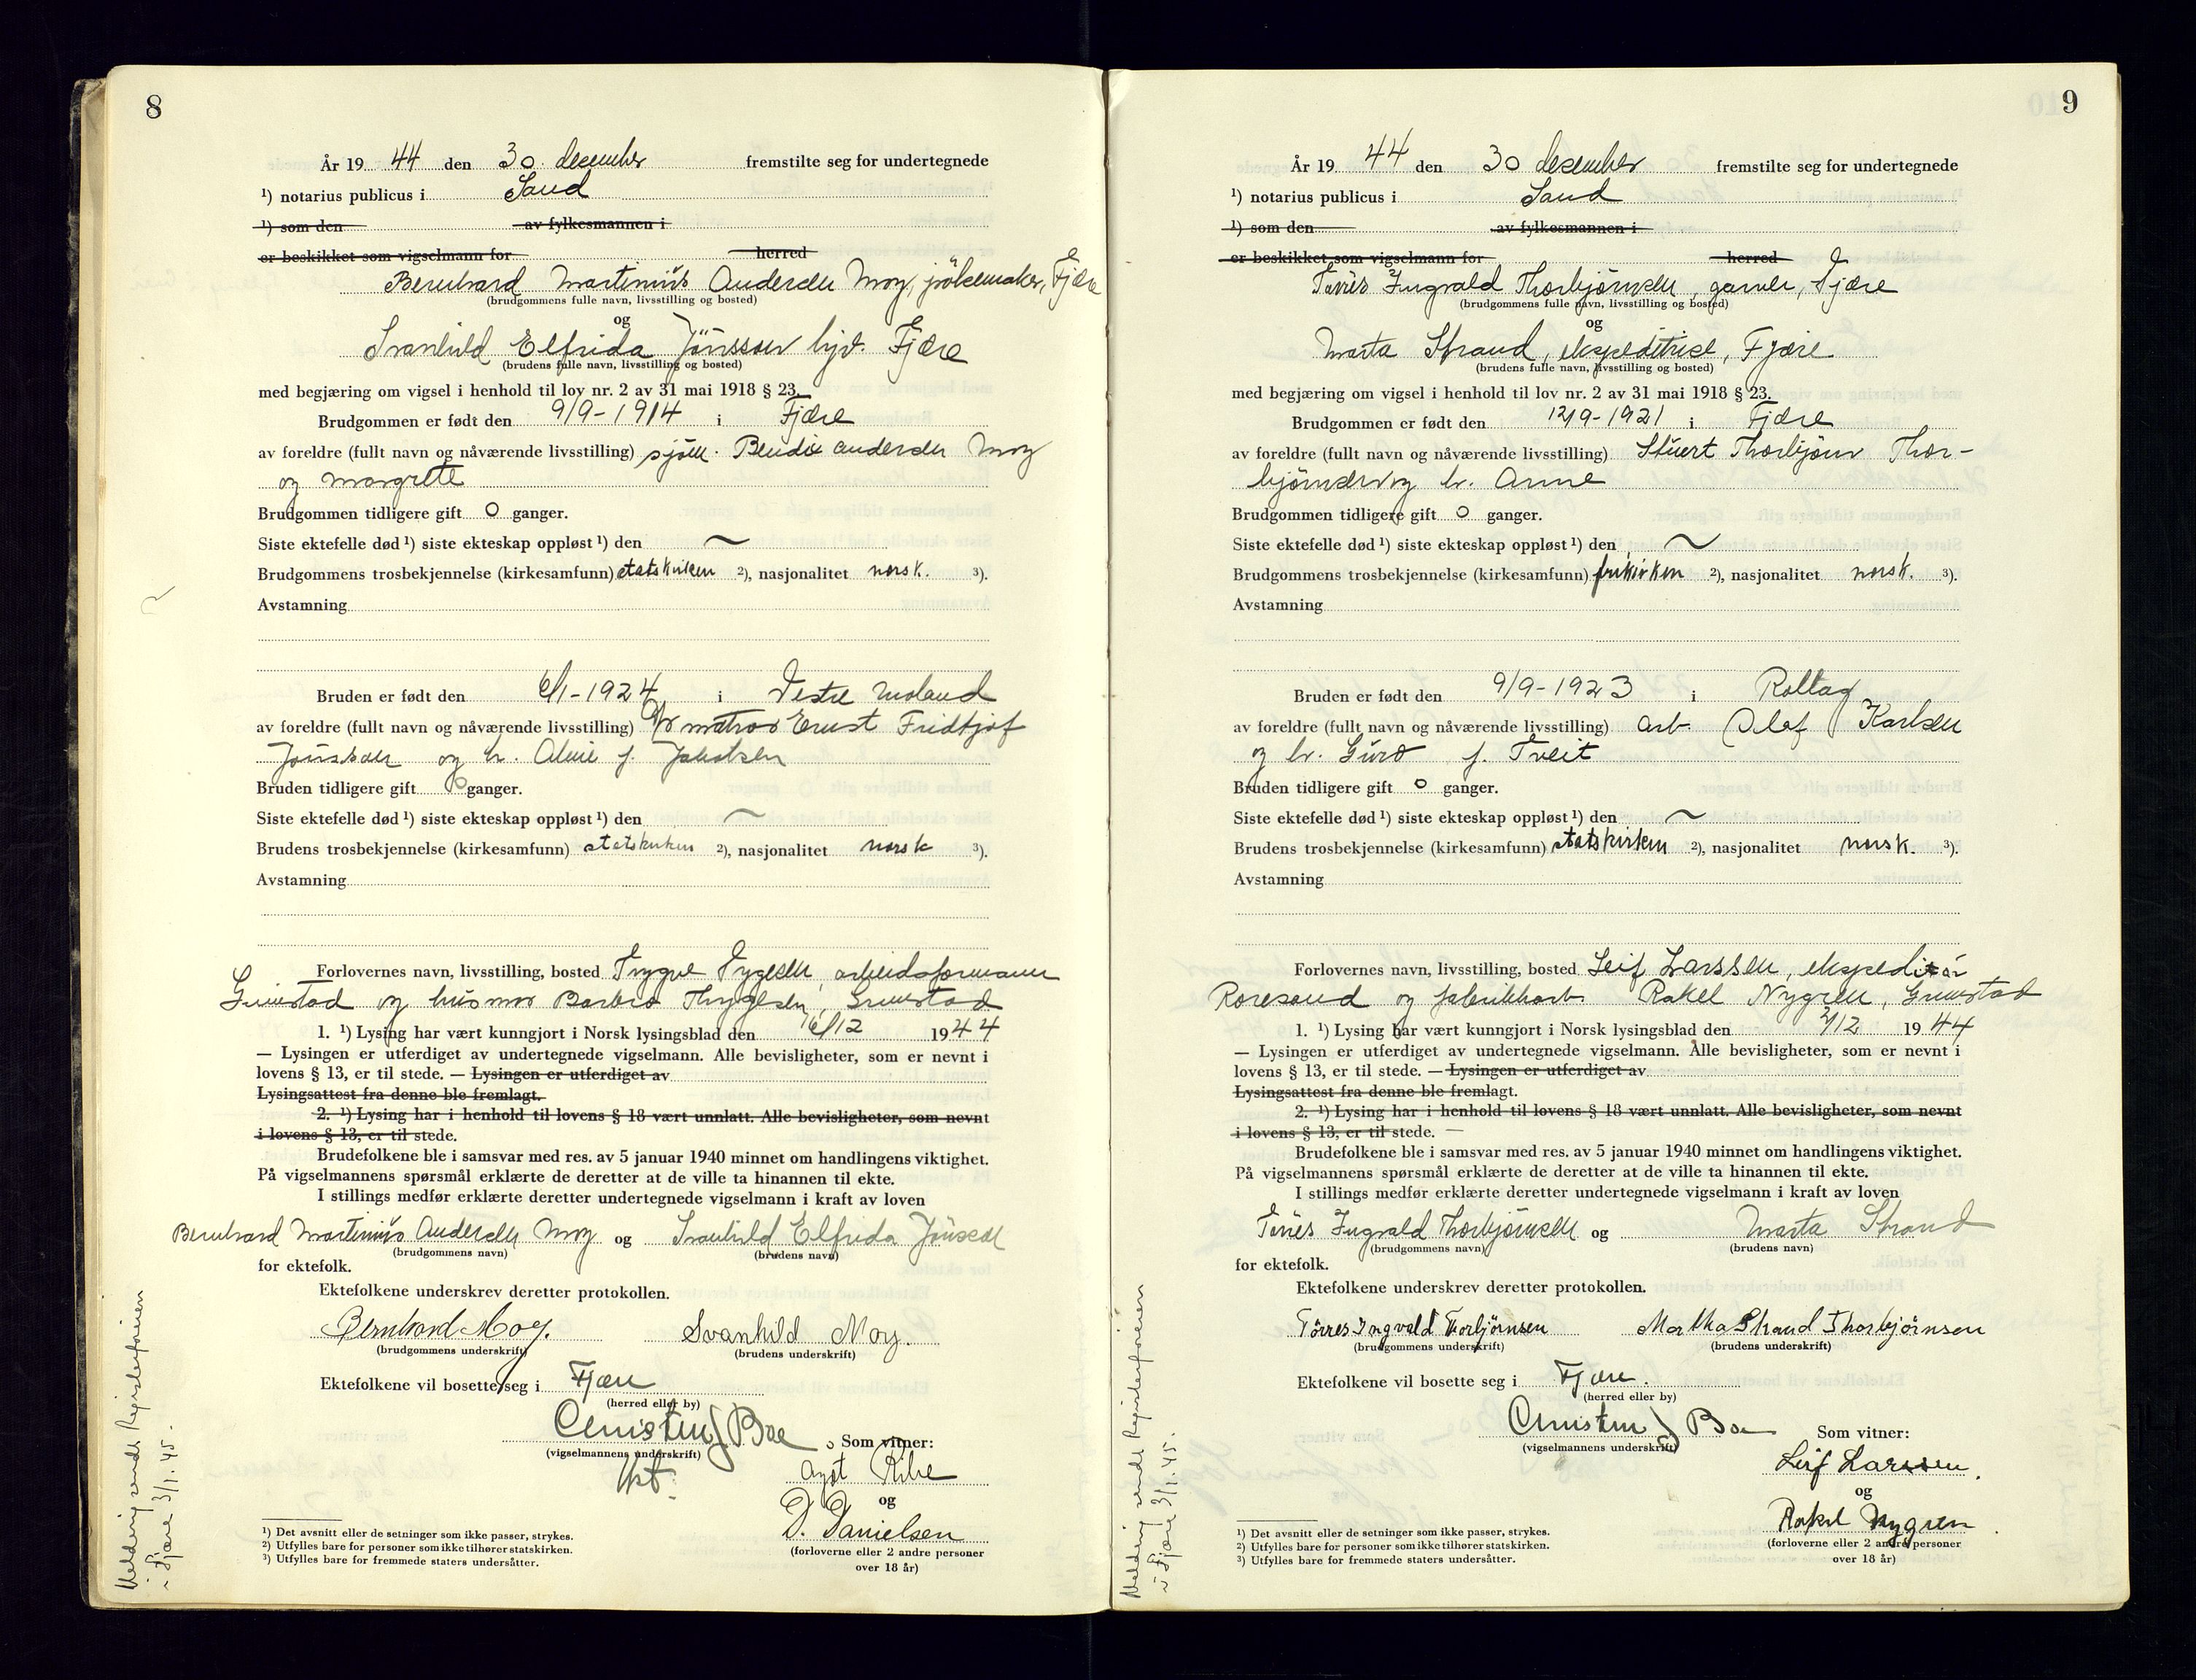 8
År 19 44 den 30. desember fremstilte seg for undertegnede
¹) notarius publicus i Sand
¹) som den av fylkesmannen i
er beskikket som vigselmann for herred
Bernhard Martinius Andersen Moy, Fjære
(brudgommens fulle navn, livsstilling og bosted)
og
Svanhild Elfrida Jönsson hyd. Fjære
(brudens fulle navn, livsstilling og bosted)
med begjæring om vigsel i henhold til lov nr. 2 av 31 mai 1918 § 23.
Brudgommen er født den 9/9-1914 i Fjære
av foreldre (fullt navn og nåværende livsstilling) sjöm. Andersen Moy
og Margrete
Brudgommen tidligere gift 0 ganger.
Siste ektefelle død ¹) siste ekteskap oppløst ¹) den ~
Brudgommens trosbekjennelse (kirkesamfunn) statskirken ²), nasjonalitet norsk. ³).
Avstamning
Bruden er født den 6/1-1924 i Vestre Moland
av foreldre (fullt navn og nåværende livsstilling) matros Ernst Fridtjof
Jönsson og h. f. Jakobsen
Bruden tidligere gift 0 ganger.
Siste ektefelle død ¹) siste ekteskap oppløst ¹) den ~
Brudens trosbekjennelse (kirkesamfunn) statskirken ²), nasjonalitet norsk ³).
Avstamning
Forlovernes navn, livsstilling, bosted Trygve Tygesen, arbeidsformann
Grimstad og husmor Barbro Thygesen, Grimstad
1. ¹) Lysing har vært kunngjort i Norsk lysingsblad den 16/12 1944
— Lysingen er utferdiget av undertegnede vigselmann. Alle bevisligheter, som er nevnt i
lovens § 13, er til stede. — Lysingen er utferdiget av
Lysingsattest fra denne ble fremlagt.
2. ¹) Lysing har i henhold til lovens § 18 vært unnlatt. Alle bevisligheter, som nevnt
i lovens § 13, er til stede.
Brudefolkene ble i samsvar med res. av 5 januar 1940 minnet om handlingens viktighet.
På vigselmannens spørsmål erklærte de deretter at de ville ta hinannen til ekte.
I stillings medfør erklærte deretter undertegnede vigselmann i kraft av loven
Bernhard Martinius Andersen Moy og Svanhild Elfrida Jönsson
(brudgommens navn) (brudens navn)
for ektefolk.
Ektefolkene underskrev deretter protokollen.
Bernhard Moy. Svanhild Moy.
(brudgommens underskrift) (brudens underskrift)
Ektefolkene vil bosette seg i Fjære
(herred eller by)
Christen J Boe Som vitner:
(vigselmannens underskrift)
kst. Aagot Ribe
og
D. Danielsen
(forloverne eller 2 andre personer
over 18 år)
¹) Det avsnitt eller de setninger som ikke passer, strykes.
²) Utfylles bare for personer som ikke tilhører statskirken.
³) Utfylles bare for fremmede staters undersåtter.
Melding sendt Registerföreren
i Fjære 3/1.45.
9
År 19 44 den 30 desember fremstilte seg for undertegnede
¹) notarius publicus i Sand
¹) som den av fylkesmannen i
er beskikket som vigselmann for herred
Tørres Ingvald Thorbjørnsen, garver, Fjære
(brudgommens fulle navn, livsstilling og bosted)
og
Marta Strand, ekspeditrise, Fjære
(brudens fulle navn, livsstilling og bosted)
med begjæring om vigsel i henhold til lov nr. 2 av 31 mai 1918 § 23.
Brudgommen er født den 12/9-1921 i Fjære
av foreldre (fullt navn og nåværende livsstilling) Stuert Thorbjørn Thor-
bjørnsen og h. Anne
Brudgommen tidligere gift 0 ganger.
Siste ektefelle død ¹) siste ekteskap oppløst ¹) den ~
Brudgommens trosbekjennelse (kirkesamfunn) frikirken ²), nasjonalitet norsk. ³).
Avstamning
Bruden er født den 9/9-1923 i Rollag
av foreldre (fullt navn og nåværende livsstilling) arb. Olaf Karlsen
og h. Guro f. Tveit
Bruden tidligere gift 0 ganger.
Siste ektefelle død ¹) siste ekteskap oppløst ¹) den ~
Brudens trosbekjennelse (kirkesamfunn) statskirken ²), nasjonalitet norsk. ³).
Avstamning
Forlovernes navn, livsstilling, bosted Leif Larssen, ekspeditør
Roresand og fabrikkarb. Rakel Nygren, Grimstad
1. ¹) Lysing har vært kunngjort i Norsk lysingsblad den 2/12 1944
— Lysingen er utferdiget av undertegnede vigselmann. Alle bevisligheter, som er nevnt i
lovens § 13, er til stede. — Lysingen er utferdiget av
Lysingsattest fra denne ble fremlagt.
2. ¹) Lysing har i henhold til lovens § 18 vært unnlatt. Alle bevisligheter, som nevnt
i lovens § 13, er til stede. —
Brudefolkene ble i samsvar med res. av 5 januar 1940 minnet om handlingens viktighet.
På vigselmannens spørsmål erklærte de deretter at de ville ta hinannen til ekte.
I stillings medfør erklærte deretter undertegnede vigselmann i kraft av loven
Tørres Ingvald Thorbjørnsen og Marta Strand
(brudgommens navn) (brudens navn)
for ektefolk.
Ektefolkene underskrev deretter protokollen.
Tørres Ingvald Thorbjørnsen Martha Strand Thorbjørnsen
(brudgommens underskrift) (brudens underskrift)
Ektefolkene vil bosette seg i Fjære.
(herred eller by)
Christen J Boe Som vitner:
(vigselmannens underskrift)
Leif Larssen.
og
Rakel Nygren
(forloverne eller 2 andre personer
over 18 år)
¹) Det avsnitt eller de setninger som ikke passer, strykes.
²) Utfylles bare for personer som ikke tilhører statskirken.
³) Utfylles bare for fremmede staters undersåtter.
Melding sendt Registerföreren
i Fjære 3/1.45.